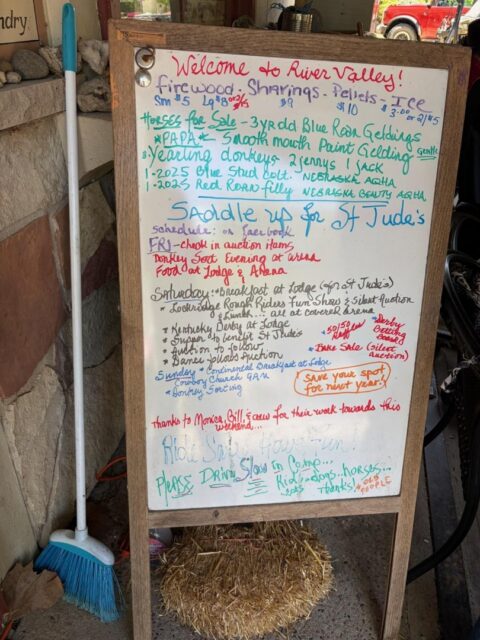 ndry.
Welcome to River Valley!
firewood - Shavings - Pellets - Ice
Sm $5 Lg $8 or 2/15 $9 $10 $3.00 or 2/$5
Horses for Sale - 3yr old Blue Roan Geldings
*PAPA* Smooth mouth Paint Gelding gentle
Yearling donkeys 2 jennys 1 jack
1-2025 Blue Stud Colt. NEBRASKA AQHA
1-2025 Red Roan filly NEBRASKA BEAUTY AQHA
Saddle up for St Jude's
schedule: on facebook
FRI - check in auction items
Donkey Sort Evening at arena
Food at Lodge & Arena
Saturday: * Breakfast at Lodge (for St Jude's)
* Lockridge Rough Riders Fun Show & Silent Auction
& Lunch... are at covered arena
* Kentucky Derby at Lodge
* Supper to benefit St Jude's
* Auction to follow
* Dance follows Auction
* 50/50 Raffle
* Derby Betting Board
* Bake Sale (silent auction)
Sunday * Continental Breakfast at Lodge
Cowboy Church 9AM
* Donkey Sorting
SAVE your spot
for next year!
Thanks to Monica, Bill, & crew for their work towards this
weekend...
Please Drive Slow in Camp...
Kids..dogs..horses...
cats Thanks! & OLD
PEOPLE